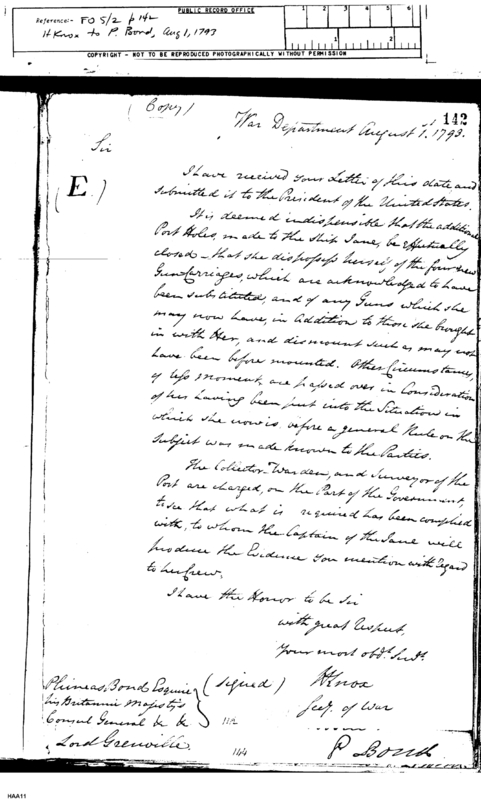 PUBLIC RECORD OFFICE
Reference:- FO 5/2 p 142
H Knox to P. Bond, Aug 1, 1793
COPYRIGHT - NOT TO BE REPRODUCED PHOTOGRAPHICALLY WITHOUT PERMISSION
142
(Copy)
War Department August 1. 1793.
Sir
(E.)
I have received your Letter of this date and
submitted it to the President of the United States.
It is deemed indispensible that the additional
Port Holes, made to the Ship Jane, be effectually
closed - that she dispossess herself of the four new
Gun Carriages, which are acknowledged to have
been substituted, and of any Guns which she
may now have, in addition to those she brought
in with Her, and dismount such as may not
have been before mounted. Other Circumstances,
of less moment, are passed over in Consideration
of her having been put into the Situation in
which she now is, before a general Rule on the
Subject was made known to the Parties.
The Collector, Warden, and Surveyor of the
Port are charged, on the Part of the Government,
to see that what is required has been complied
with, to whom the Captain of the Jane will
produce the Evidence you mention with regard
to her Crew.
I have the Honor to be Sir
with great Respect,
Your most obdt. Servt.
(signed) H Knox
Secy. of War
Phineas Bond Esquire
his Britannic Majesty's
Consul General & &
Lord Grenville.
144
P Bond
HAA11